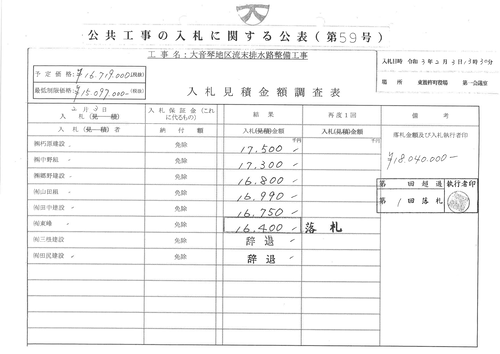 公共工事の入札に関する公表(第59号)
工事名:大音琴地区流末排水路整備工事
入札日時 令和3年2月3日13時30分
場所 東彼杵町役場 第一会議室
予定価格:¥16,719,000(税抜)
最低制限価格:¥15,097,000(税抜)
入札見積金額調査表
2月3日
入札(見積)
入札者
入札保証金(これに代るもの)
納付額
結果
入札(見積)金額
再度1回
入札(見積)金額
備考
落札金額及び入札執行者印
㈱朽原建設 〃 免除 17,500 千円
㈱中野組 〃 免除 17,300 〃
㈱郷野建設 〃 免除 16,800 〃
㈲山田組 〃 免除 16,990 〃
㈲田中建設 〃 免除 16,750 〃
㈲東峰 〃 免除 16,400 〃 落札
㈲三根建設 〃 免除 辞退 〃
㈲田尻建設 〃 免除 辞退 〃
¥18,040,000-
第 回超過 執行者印
第1回落札